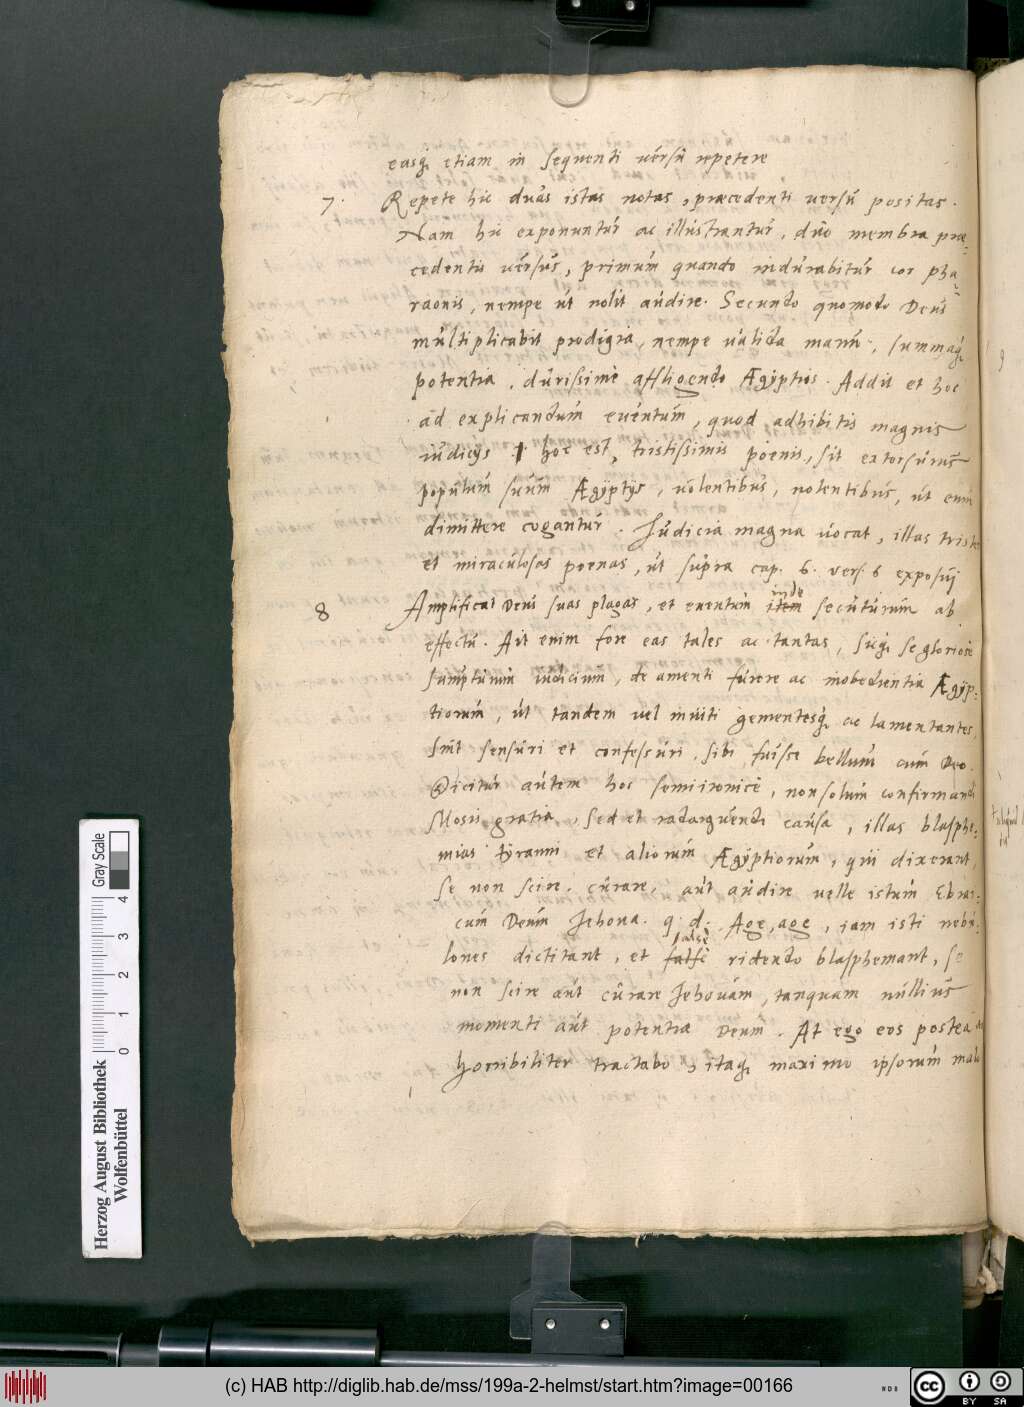 easq; etiam in sequenti versu repetere
7. Repete hic duas istas notas, præcedenti versu positas.
Nam hic exponuntur ac illustrantur, duo membra præ-
cedentis versus, primum quando indurabitur cor pha-
raonis, nempe ut nolit audire. Secundo quomodo Deus
multiplicabit prodigia, nempe valida manu, summaq;
potentia, durissimè affligendo Ægÿptios. Addit et hoc
ad explicandum eventum, quod adhibitis magnis
iudicijs hoc est, tristissimis poenis, sit extorsurus
populum suum Ægÿptijs, volentibus, nolentibus, ut eum
dimittere cogantur. Judicia magna vocat, illas tristes
et miraculosas poenas, ut supra cap. 6. vers. 6 exposui
8 Amplificat Deus suas plagas, et eventum inde secuturum ab
effectu. Ait enim fore eas tales ac tantas, sicq; se gloriosè
sumpturum iudicium, de amenti furore ac inobedientia Ægÿp-
tiorum, ut tandem vel inviti gementesq; ac lamentantes,
sint sensuri et confessuri, sibi fuisse bellum cum Deo.
Dicitur autem hoc semiironicè, non solum confirmandi
Mosis gratia, sed et redarguendi causa, illas blasphe-
mias tÿranni et aliorum Ægÿptiorum, qui dixerant,
se non scire, curare, aut audire velle istum Ebrai-
cum Deum Jehova. q. d. Age, age, iam isti nebu-
lones dictitant, et falsè ridendo blasphemant, se
non scire aut curare Jehovam, tanquam nullius
momenti aut potentia Deum. At ego eos postea
horribiliter tractabo, itaq; maximo ipsorum malo
Gray Scale
4
3
2
1
0
Herzog August Bibliothek
Wolfenbüttel
(c) HAB http://diglib.hab.de/mss/199a-2-helmst/start.htm?image=00166
cc
BY SA